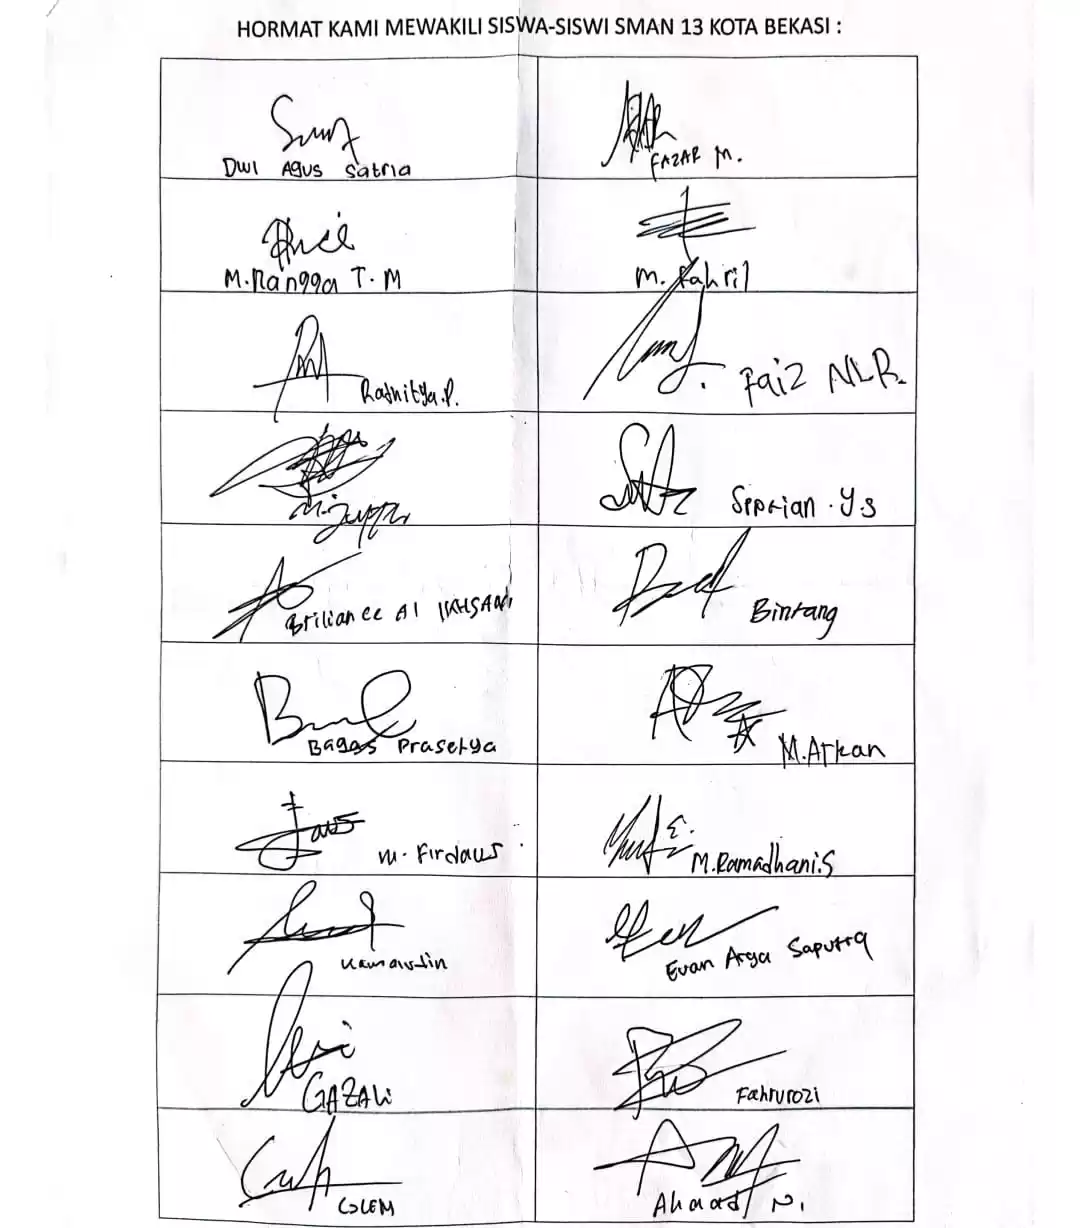 HORMAT KAMI MEWAKILI SISWA-SISWI SMAN 13 KOTA BEKASI :
Dwi Agus Satria
FAZAR M.
M.Rangga T.M
M. Fahril
Radhitya.P.
Faiz NLR.
Seprian .Y.S
Briliance Al IKHSAN
Bintang
Bagas Prasetya
M.Arkan
M. Firdaus
M.Ramadhani.S
Kamaludin
Evan Arya Saputra
GAZALi
Fahrurozi
Ahmad N.